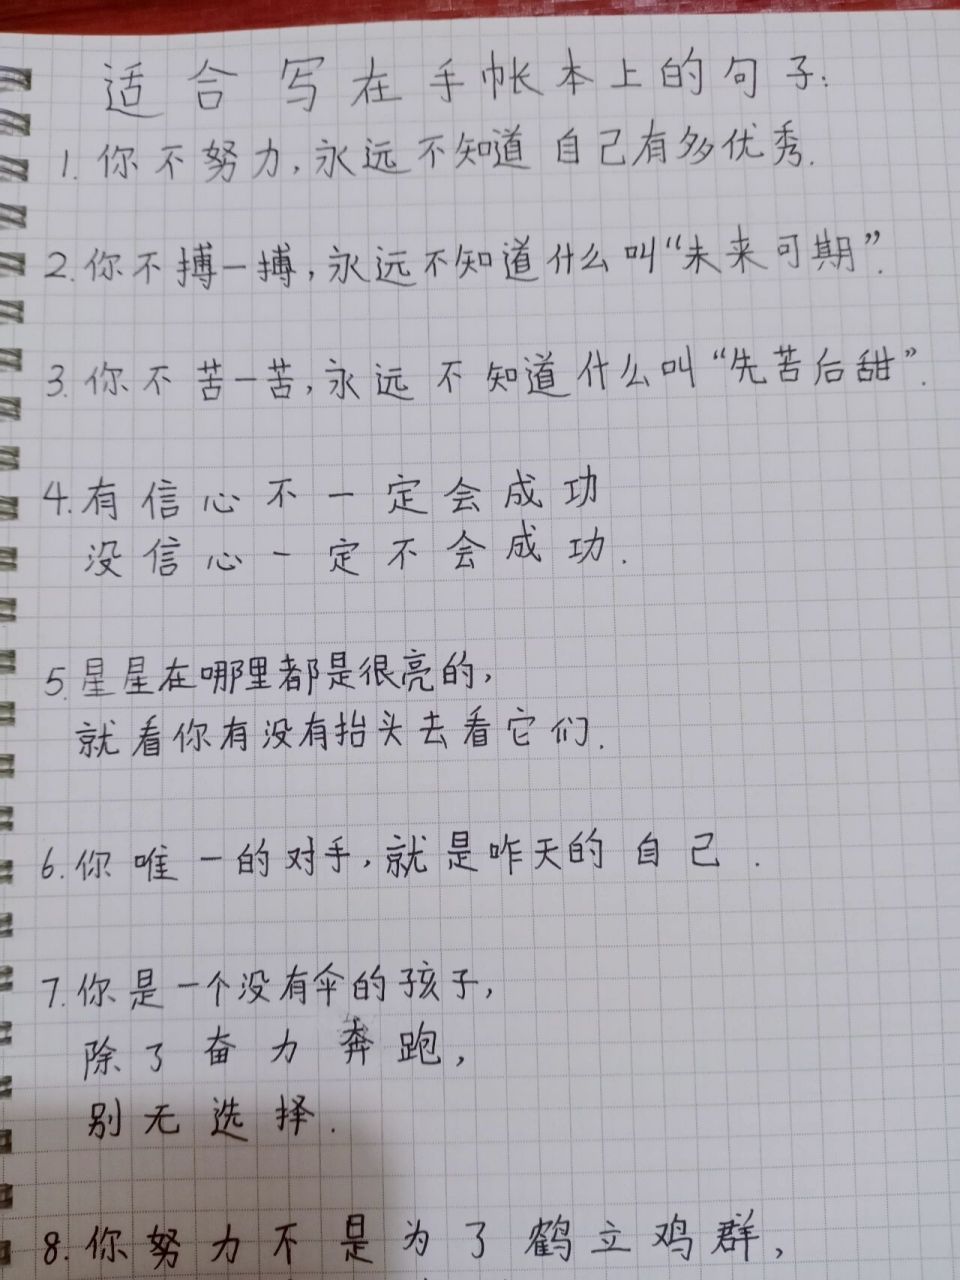 适合写在手帐本上的句子:
1. 你不努力,永远不知道自己有多优秀.
2. 你不搏一搏,永远不知道什么叫“未来可期”.
3. 你不苦一苦,永远不知道什么叫“先苦后甜”.
4. 有信心不一定会成功
没信心一定不会成功.
5. 星星在哪里都是很亮的,
就看你有没有抬头去看它们.
6. 你唯一的对手,就是昨天的自己.
7. 你是一个没有伞的孩子,
除了奋力奔跑,
别无选择.
8. 你努力不是为了鹤立鸡群,